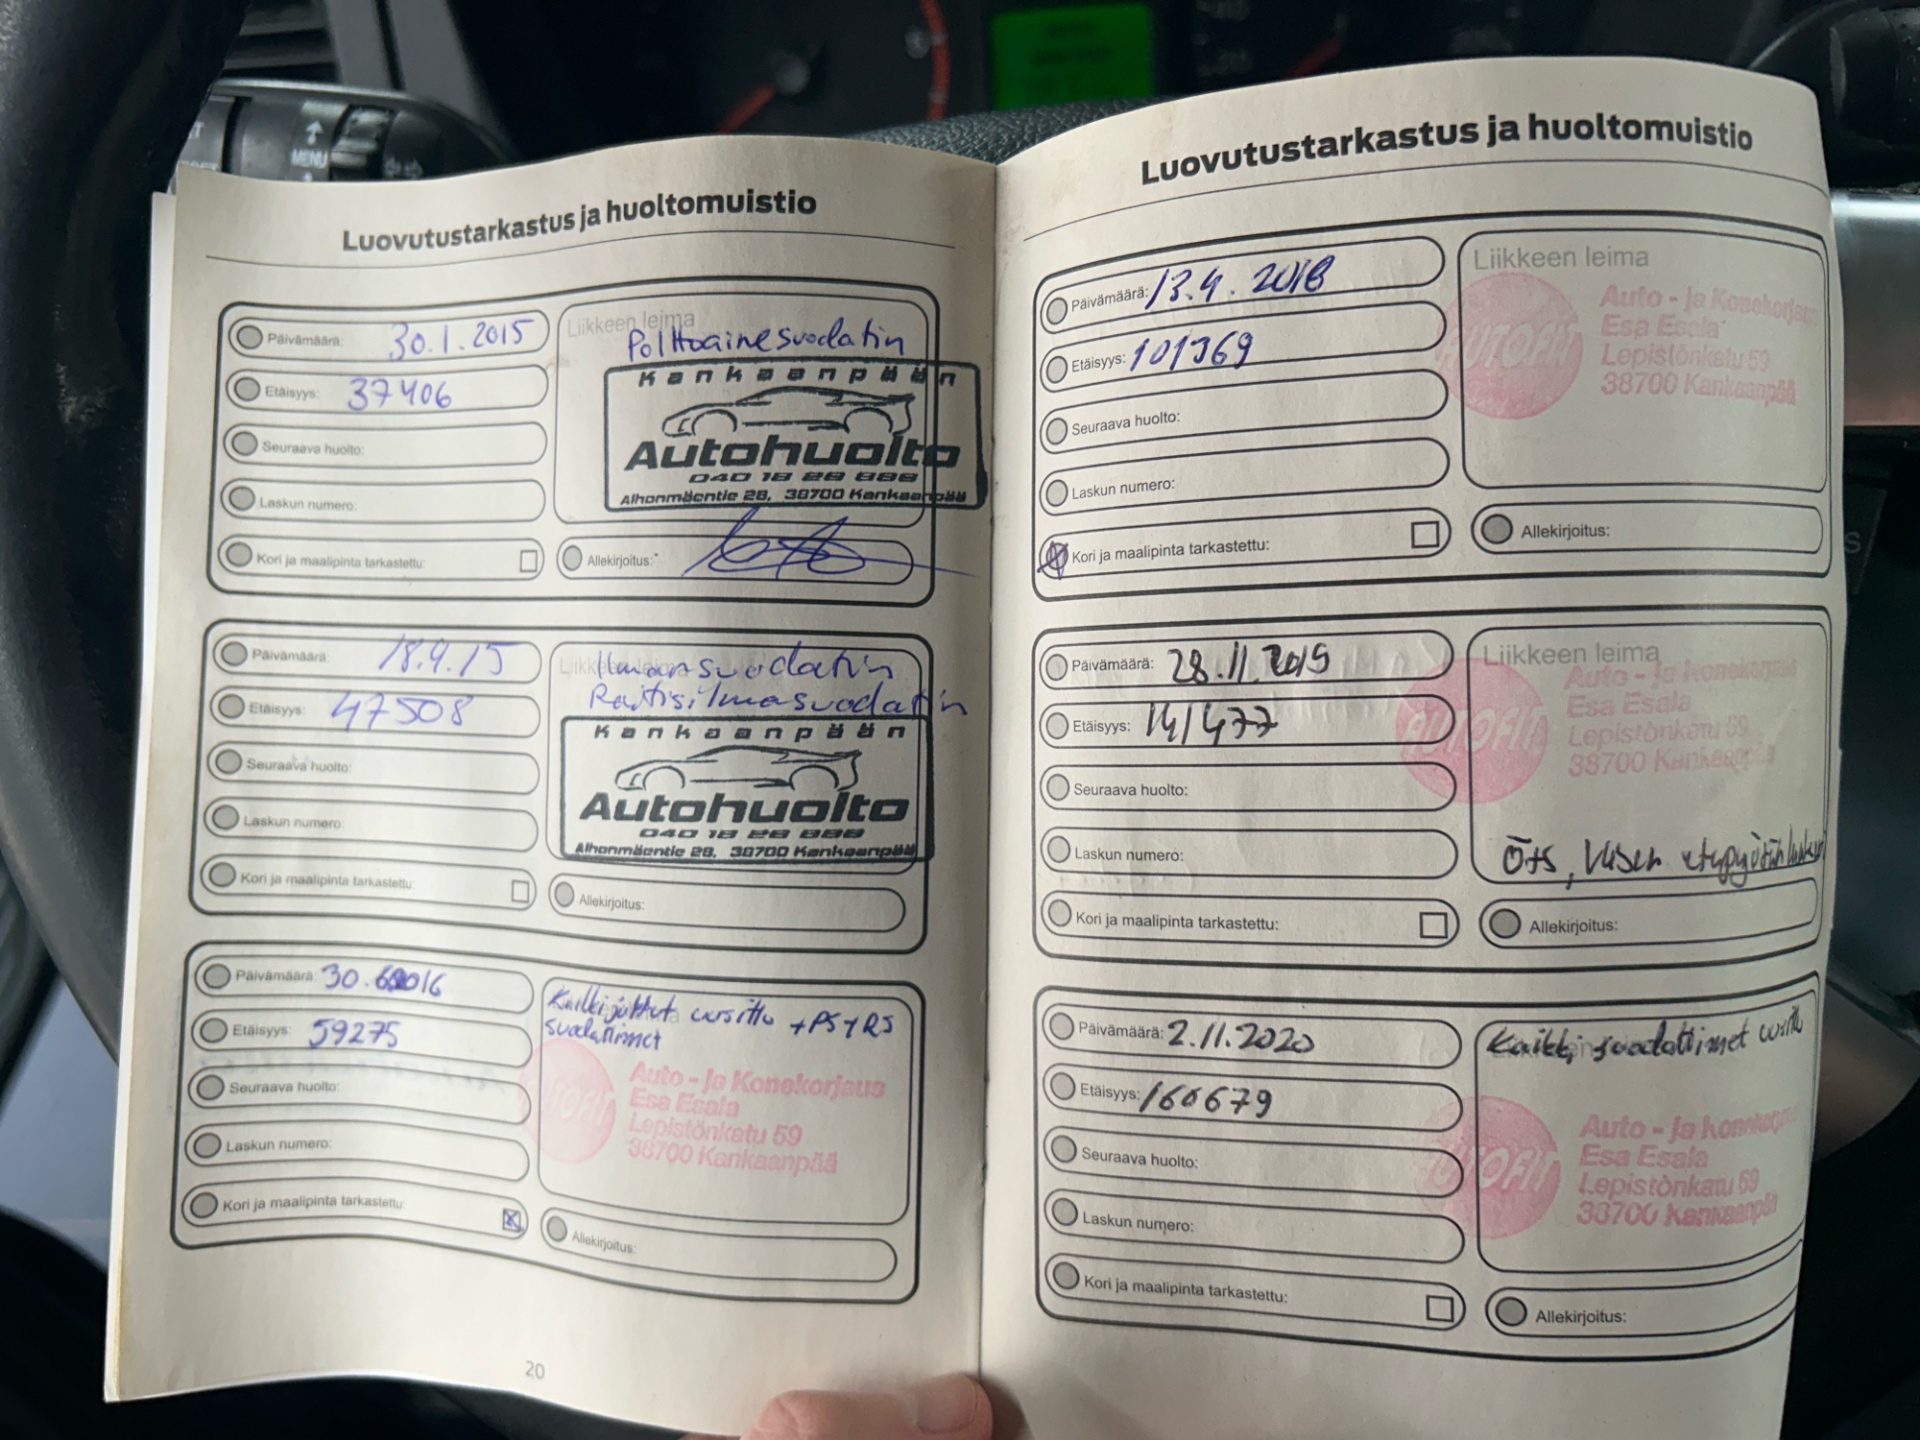 MENU
Luovutustarkastus ja huoltomuistio
Päivämäärä: 30.1.2015
Etäisyys: 37406
Seuraava huolto:
Laskun numero:
Kori ja maalipinta tarkastettu:
Liikkeen leima
Polttoainesuodatin
Kankaanpään
Autohuolto
040 18 28 888
Alhonmäentie 28, 38700 Kankaanpää
Allekirjoitus:
Päivämäärä: 18.9.15
Etäisyys: 47508
Seuraava huolto:
Laskun numero:
Kori ja maalipinta tarkastettu:
Ilmansuodatin
Raitisilmasuodatin
Kankaanpään
Autohuolto
040 18 28 888
Alhonmäentie 28, 38700 Kankaanpää
Allekirjoitus:
Päivämäärä: 30.6.2016
Etäisyys: 59275
Seuraava huolto:
Laskun numero:
Kori ja maalipinta tarkastettu:
uusittu + PS + RS
suodattimet
Auto - ja Konekorjaus
Esa Esala
Lepistönkatu 59
38700 Kankaanpää
Allekirjoitus:
20
Luovutustarkastus ja huoltomuistio
Päivämäärä: 13.4.2018
Etäisyys: 101369
Seuraava huolto:
Laskun numero:
Kori ja maalipinta tarkastettu:
Liikkeen leima
AUTOFIT
Auto - ja Konekorjaus
Esa Esala
Lepistönkatu 59
38700 Kankaanpää
Allekirjoitus:
Päivämäärä: 28.11.2019
Etäisyys: 141477
Seuraava huolto:
Laskun numero:
Kori ja maalipinta tarkastettu:
Liikkeen leima
AUTOFIT
Auto - ja Konekorjaus
Esa Esala
Lepistönkatu 59
38700 Kankaanpää
Öts,
Allekirjoitus:
Päivämäärä: 2.11.2020
Etäisyys: 160679
Seuraava huolto:
Laskun numero:
Kori ja maalipinta tarkastettu:
Kaikki suodattimet uusittu
AUTOFIT
Auto - ja Konekorjaus
Esa Esala
Lepistönkatu 59
38700 Kankaanpää
Allekirjoitus: